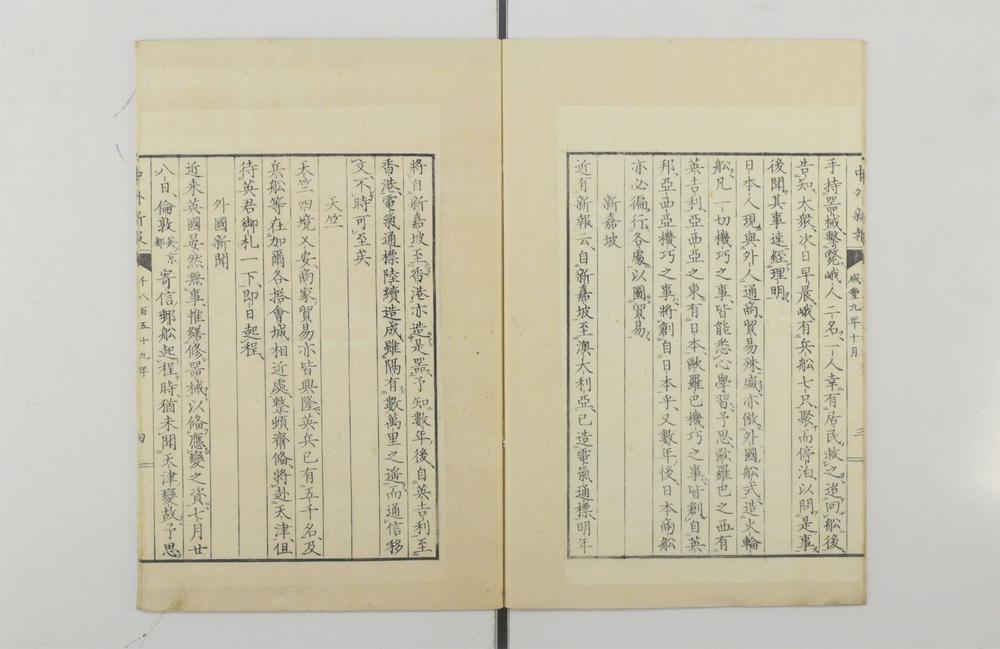 中外新報 咸豐九年十月 三
手持器械擊斃峨人二名一人幸有居民救之迨回船後
告知大衆次日早晨峨有兵船七只聚而停泊以問是事
後聞其事速經理明
日本人現與外人通商貿易殊盛亦倣外國船式造火輪
船凡一切機巧之事皆能悉心學習予思歐羅巴之西有
英吉利亞西亞之東有日本歐羅巴機巧之事皆創自英
邦亞西亞機巧之事將創自日本乎又數年後日本商船
亦必徧行各處以圖貿易
新嘉坡
近有新報云自新嘉坡至澳大利亞已造電氣通標明年
將自新嘉坡至香港亦造是器予知數年後自英吉利至
香港電氣通標陸續造成雖隔有數萬里之遙而通信移
文不時可至矣
天竺
天竺四境乂安商家貿易亦皆興隆英兵已有五千名及
兵船等在加爾各搭會城相近處整頓齊備將赴天津但
待英君御札一下即日起程
外國新聞
近来英國晏然無事惟繕修器械以備應變之資七月廿
八日倫敦英京都寄信郵船起程時猶未聞天津變故予思
中外新報 千八百五十九年 四